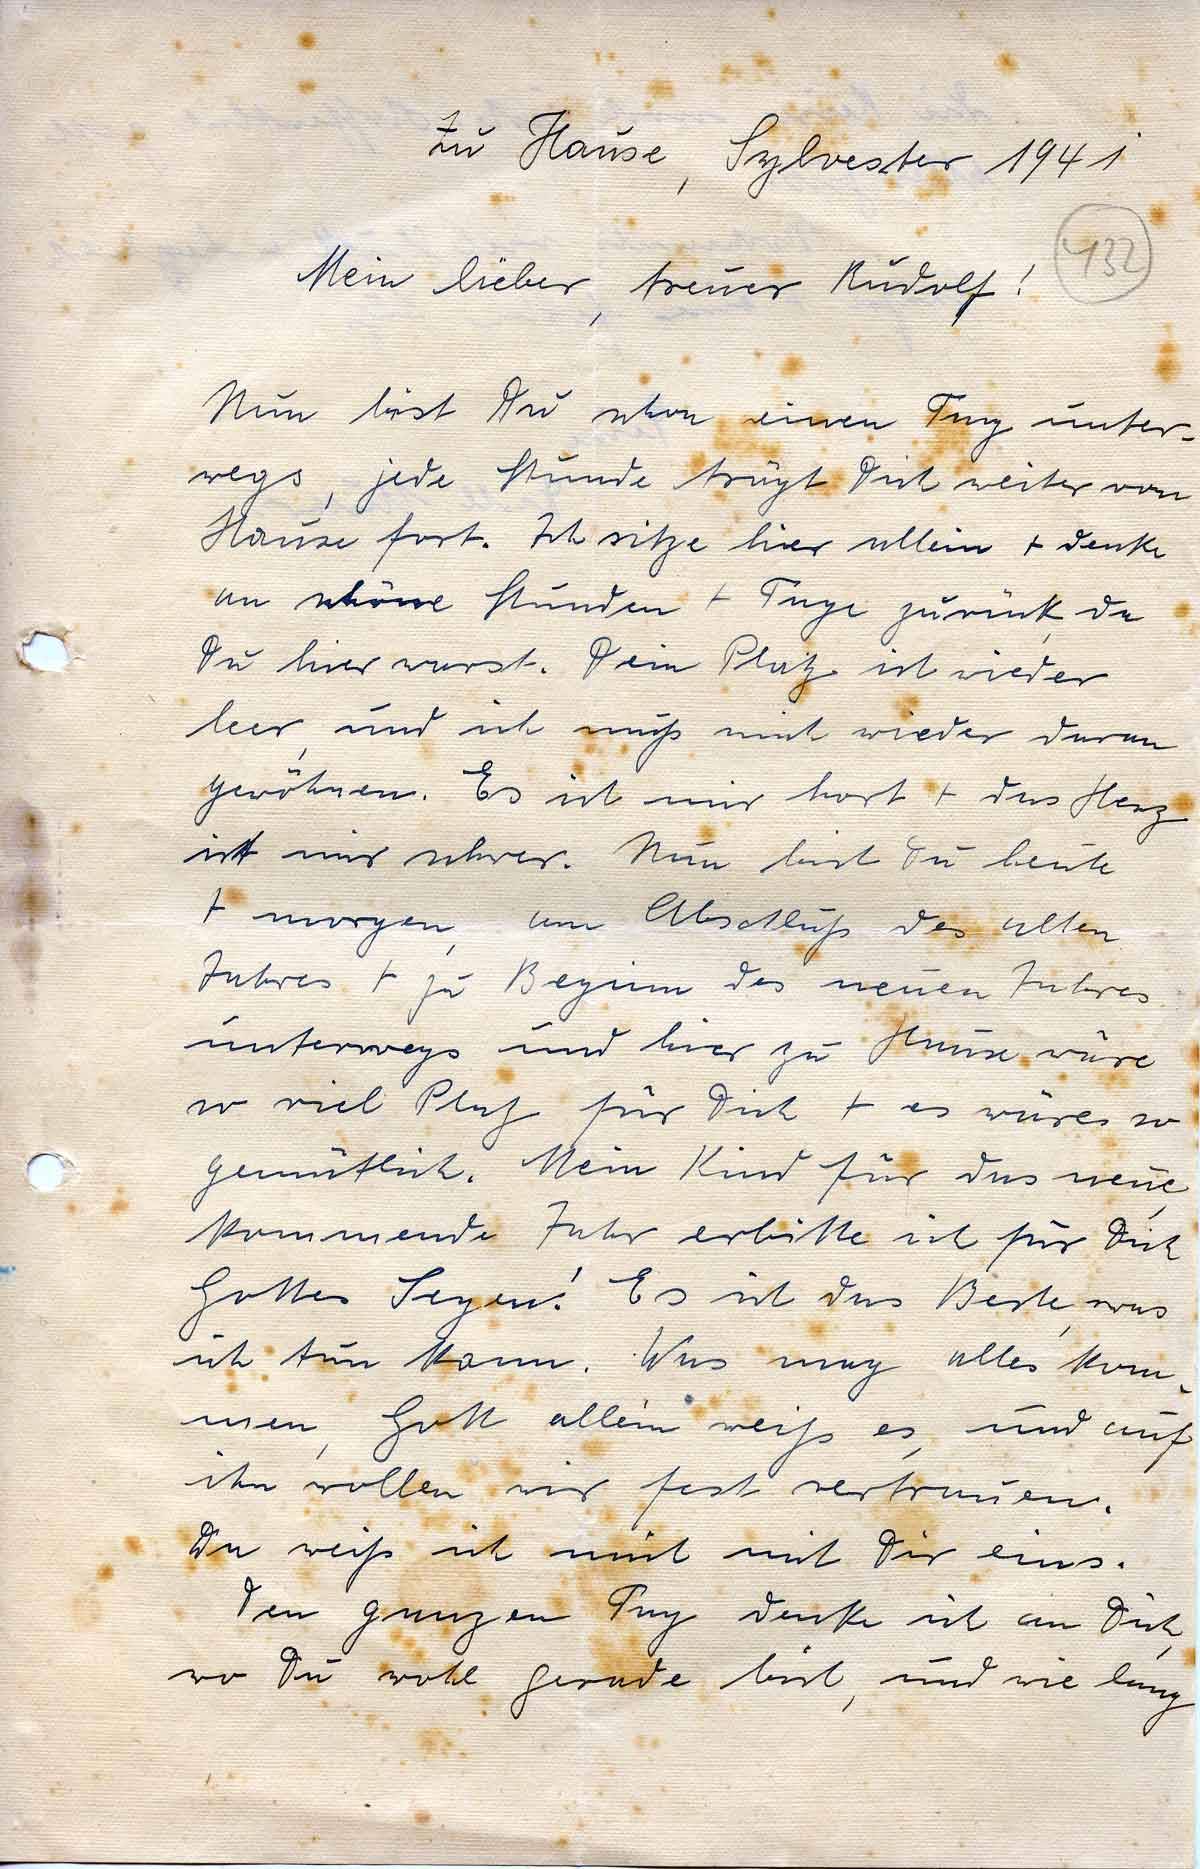 Zu Hause, Sylvester 1941
432
Mein lieber, treuer Rudolf!
Nun bist Du schon einen Tag unter-
wegs, jede Stunde trägt Dich weiter von
Hause fort. Ich sitze hier allein + denke
an schöne Stunden + Tage zurück, da
Du hier warst. Dein Platz ist wieder
leer, und ich muß mich wieder daran
gewöhnen. Es ist mir hart + das Herz
ist mir schwer. Nun bist Du heute
+ morgen, am Abschluß des alten
Jahres + zu Beginn des neuen Jahres
unterwegs und hier zu Hause wäre
so viel Platz für Dich + es wäre so
gemütlich. Mein Kind für das neue,
kommende Jahr erbitte ich für Dich
Gottes Segen! Es ist das Beste, was
ich tun kann. Was mag alles kom-
men, Gott allein weiß es, und auf
ihn wollen wir fest vertrauen.
Da weiß ich mich mit Dir eins.
Den ganzen Tag denke ich an Dich,
wo Du wohl gerade bist, und wie lang